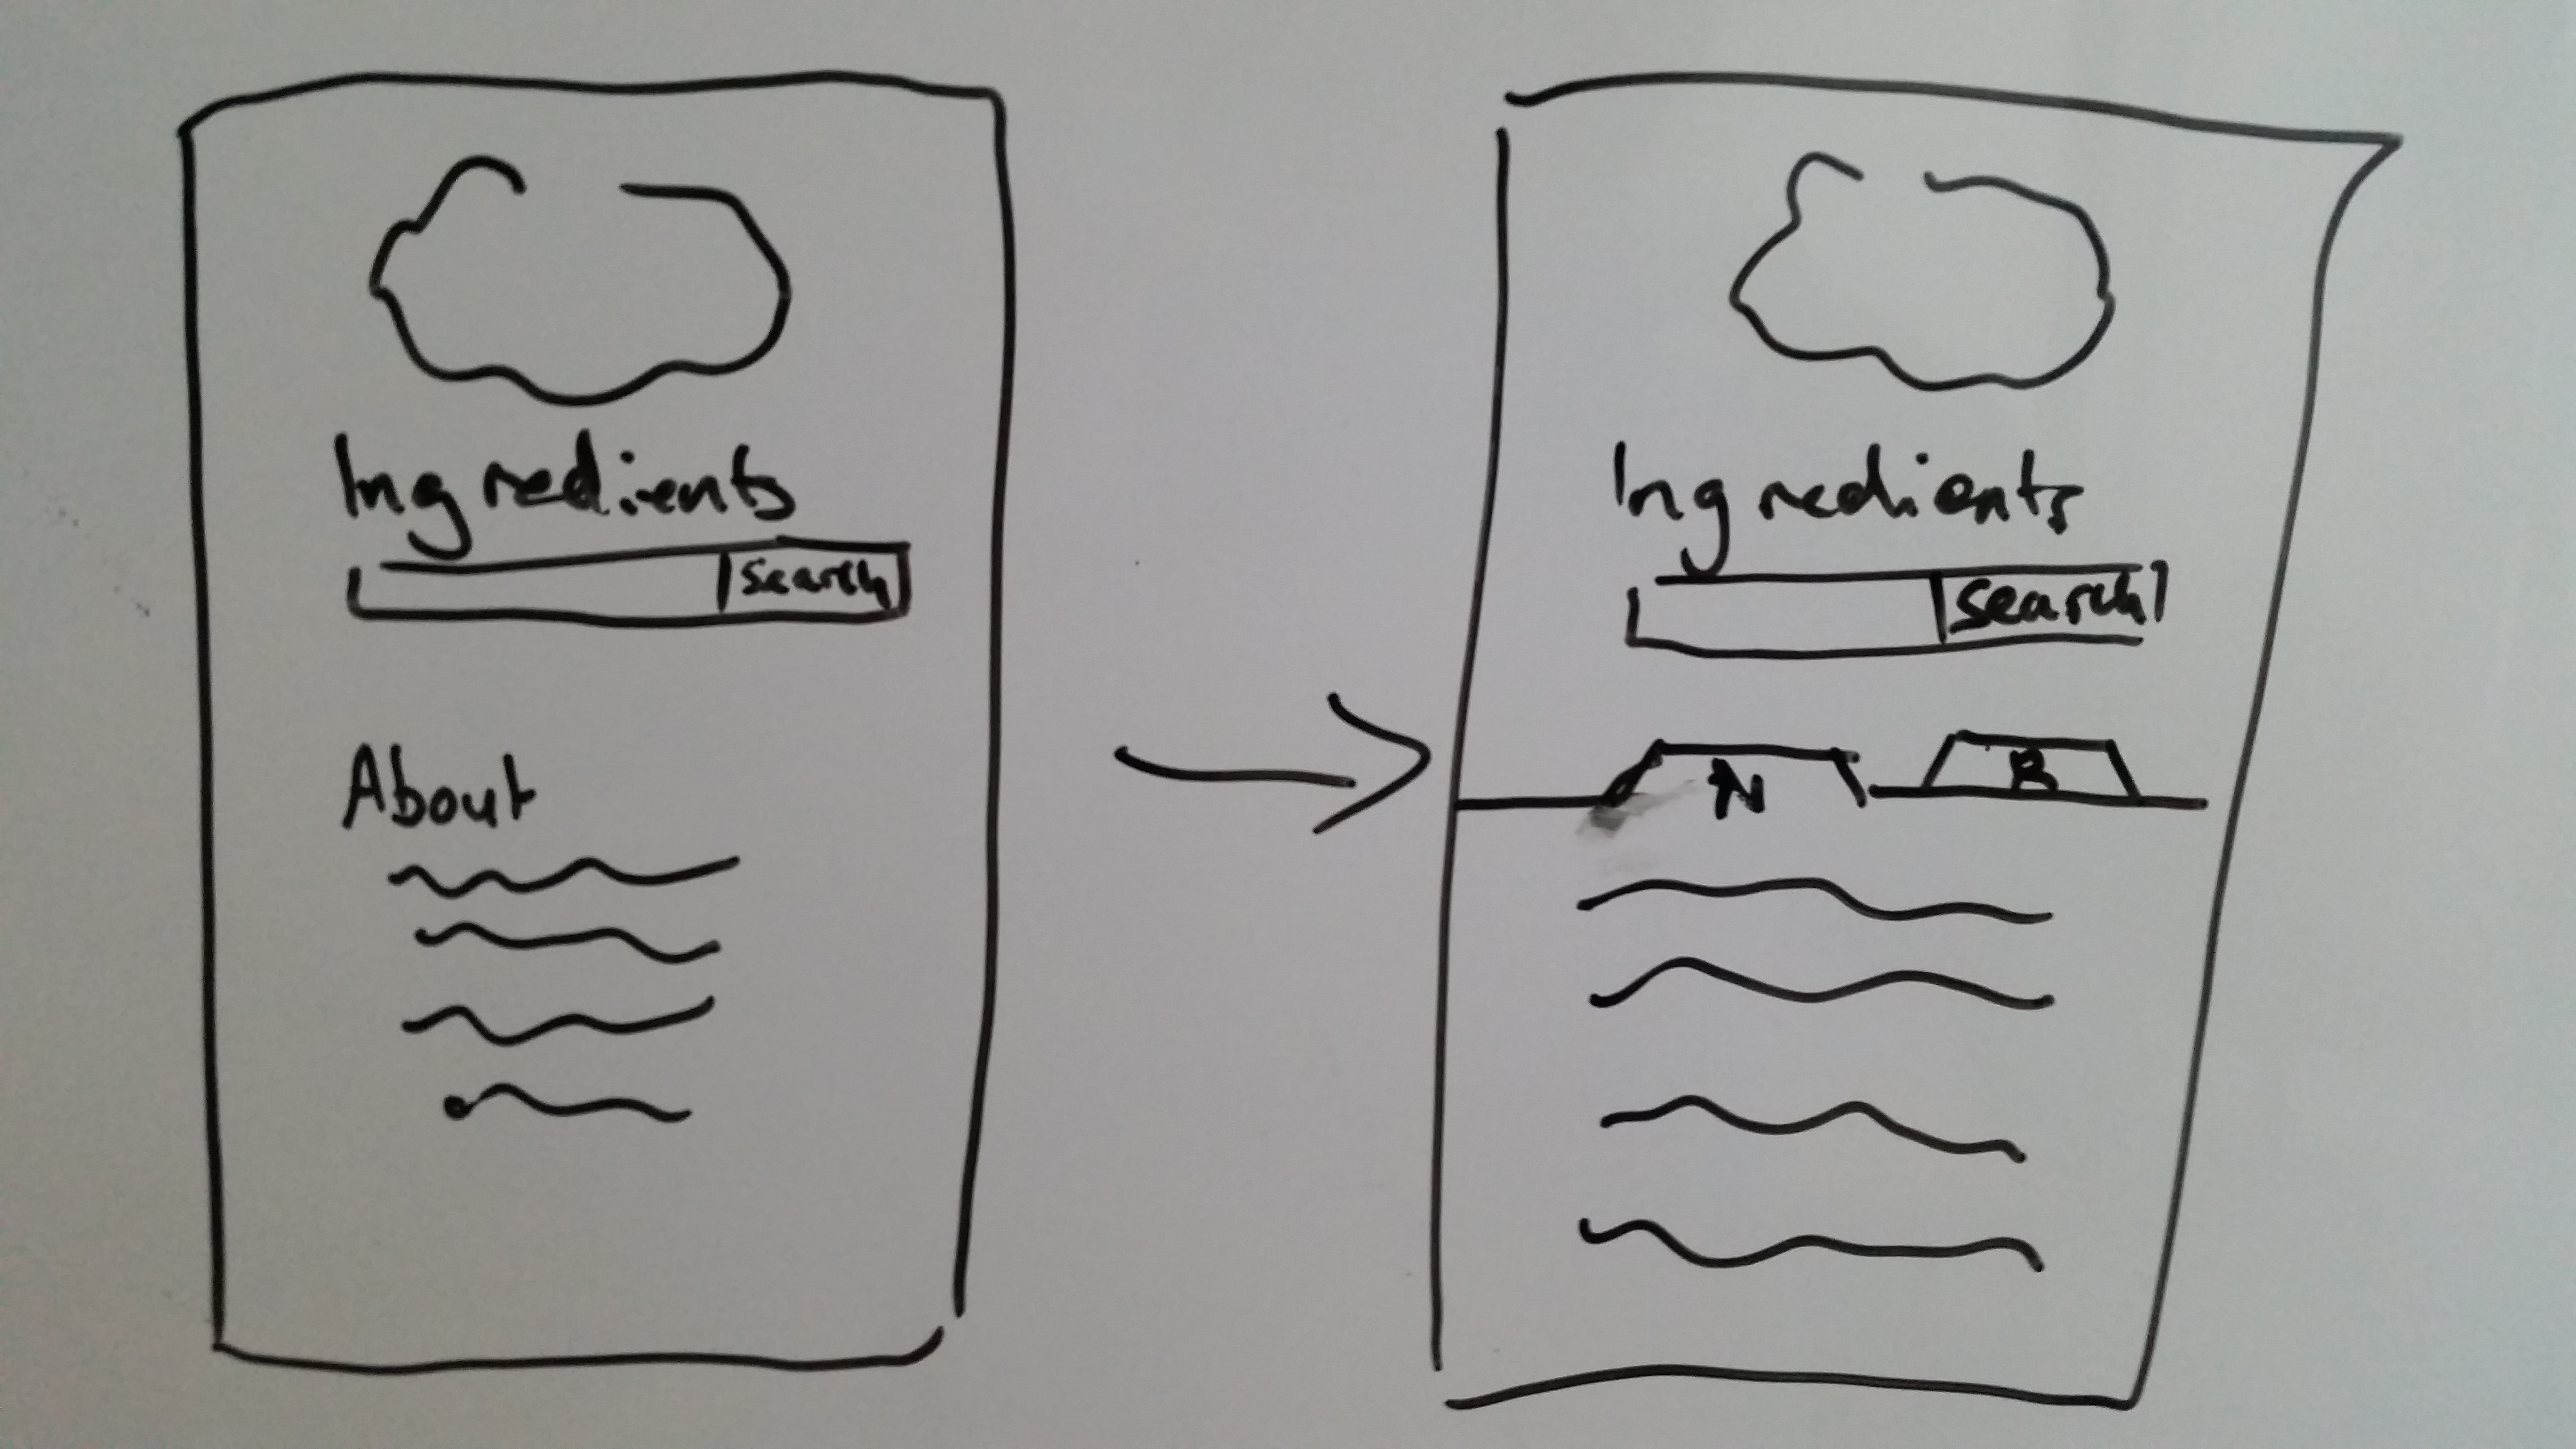 Ingredients
search
About
Ingredients
search
N
R